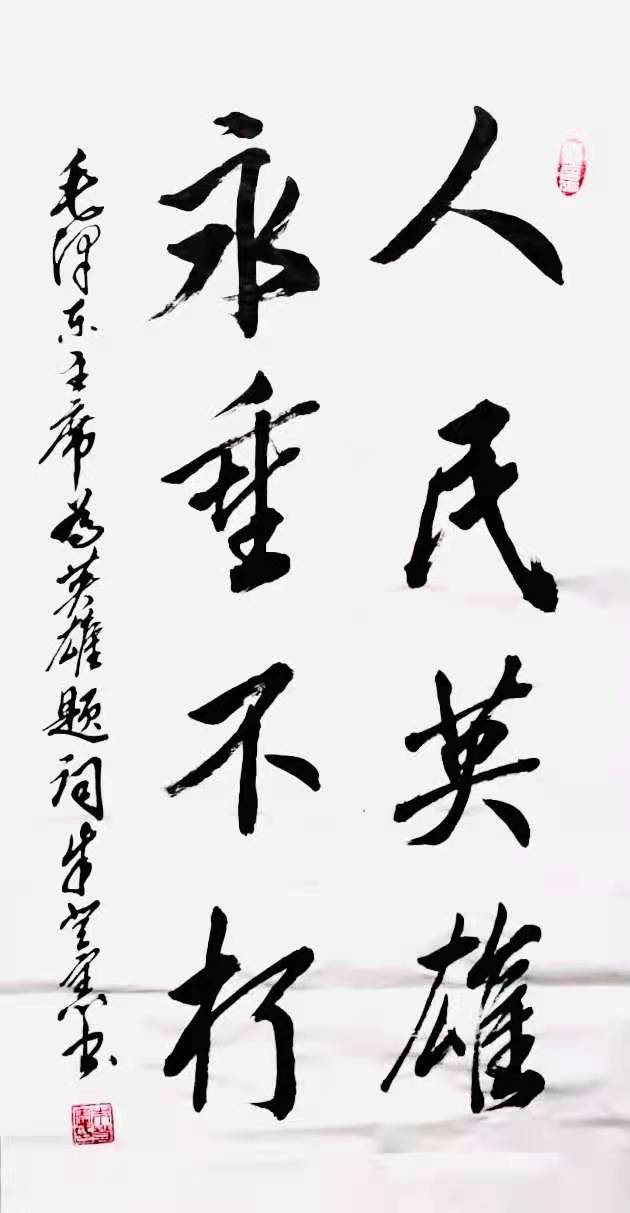 人民英雄
永垂不朽
毛泽东主席为英雄题词朱书